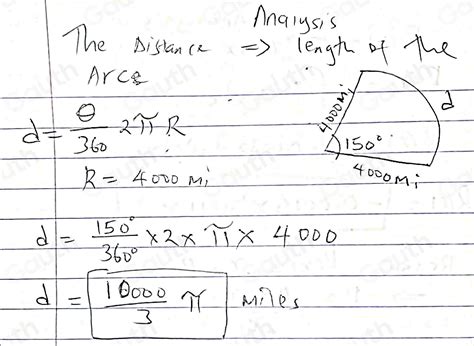 Analysis
The Distance => length of the
Arcs
d = θ/360 2π R
4000mi
d
150°
4000mi
R = 4000 mi
d = 150°/360° × 2 × π × 4000
d = 10000/3 π miles